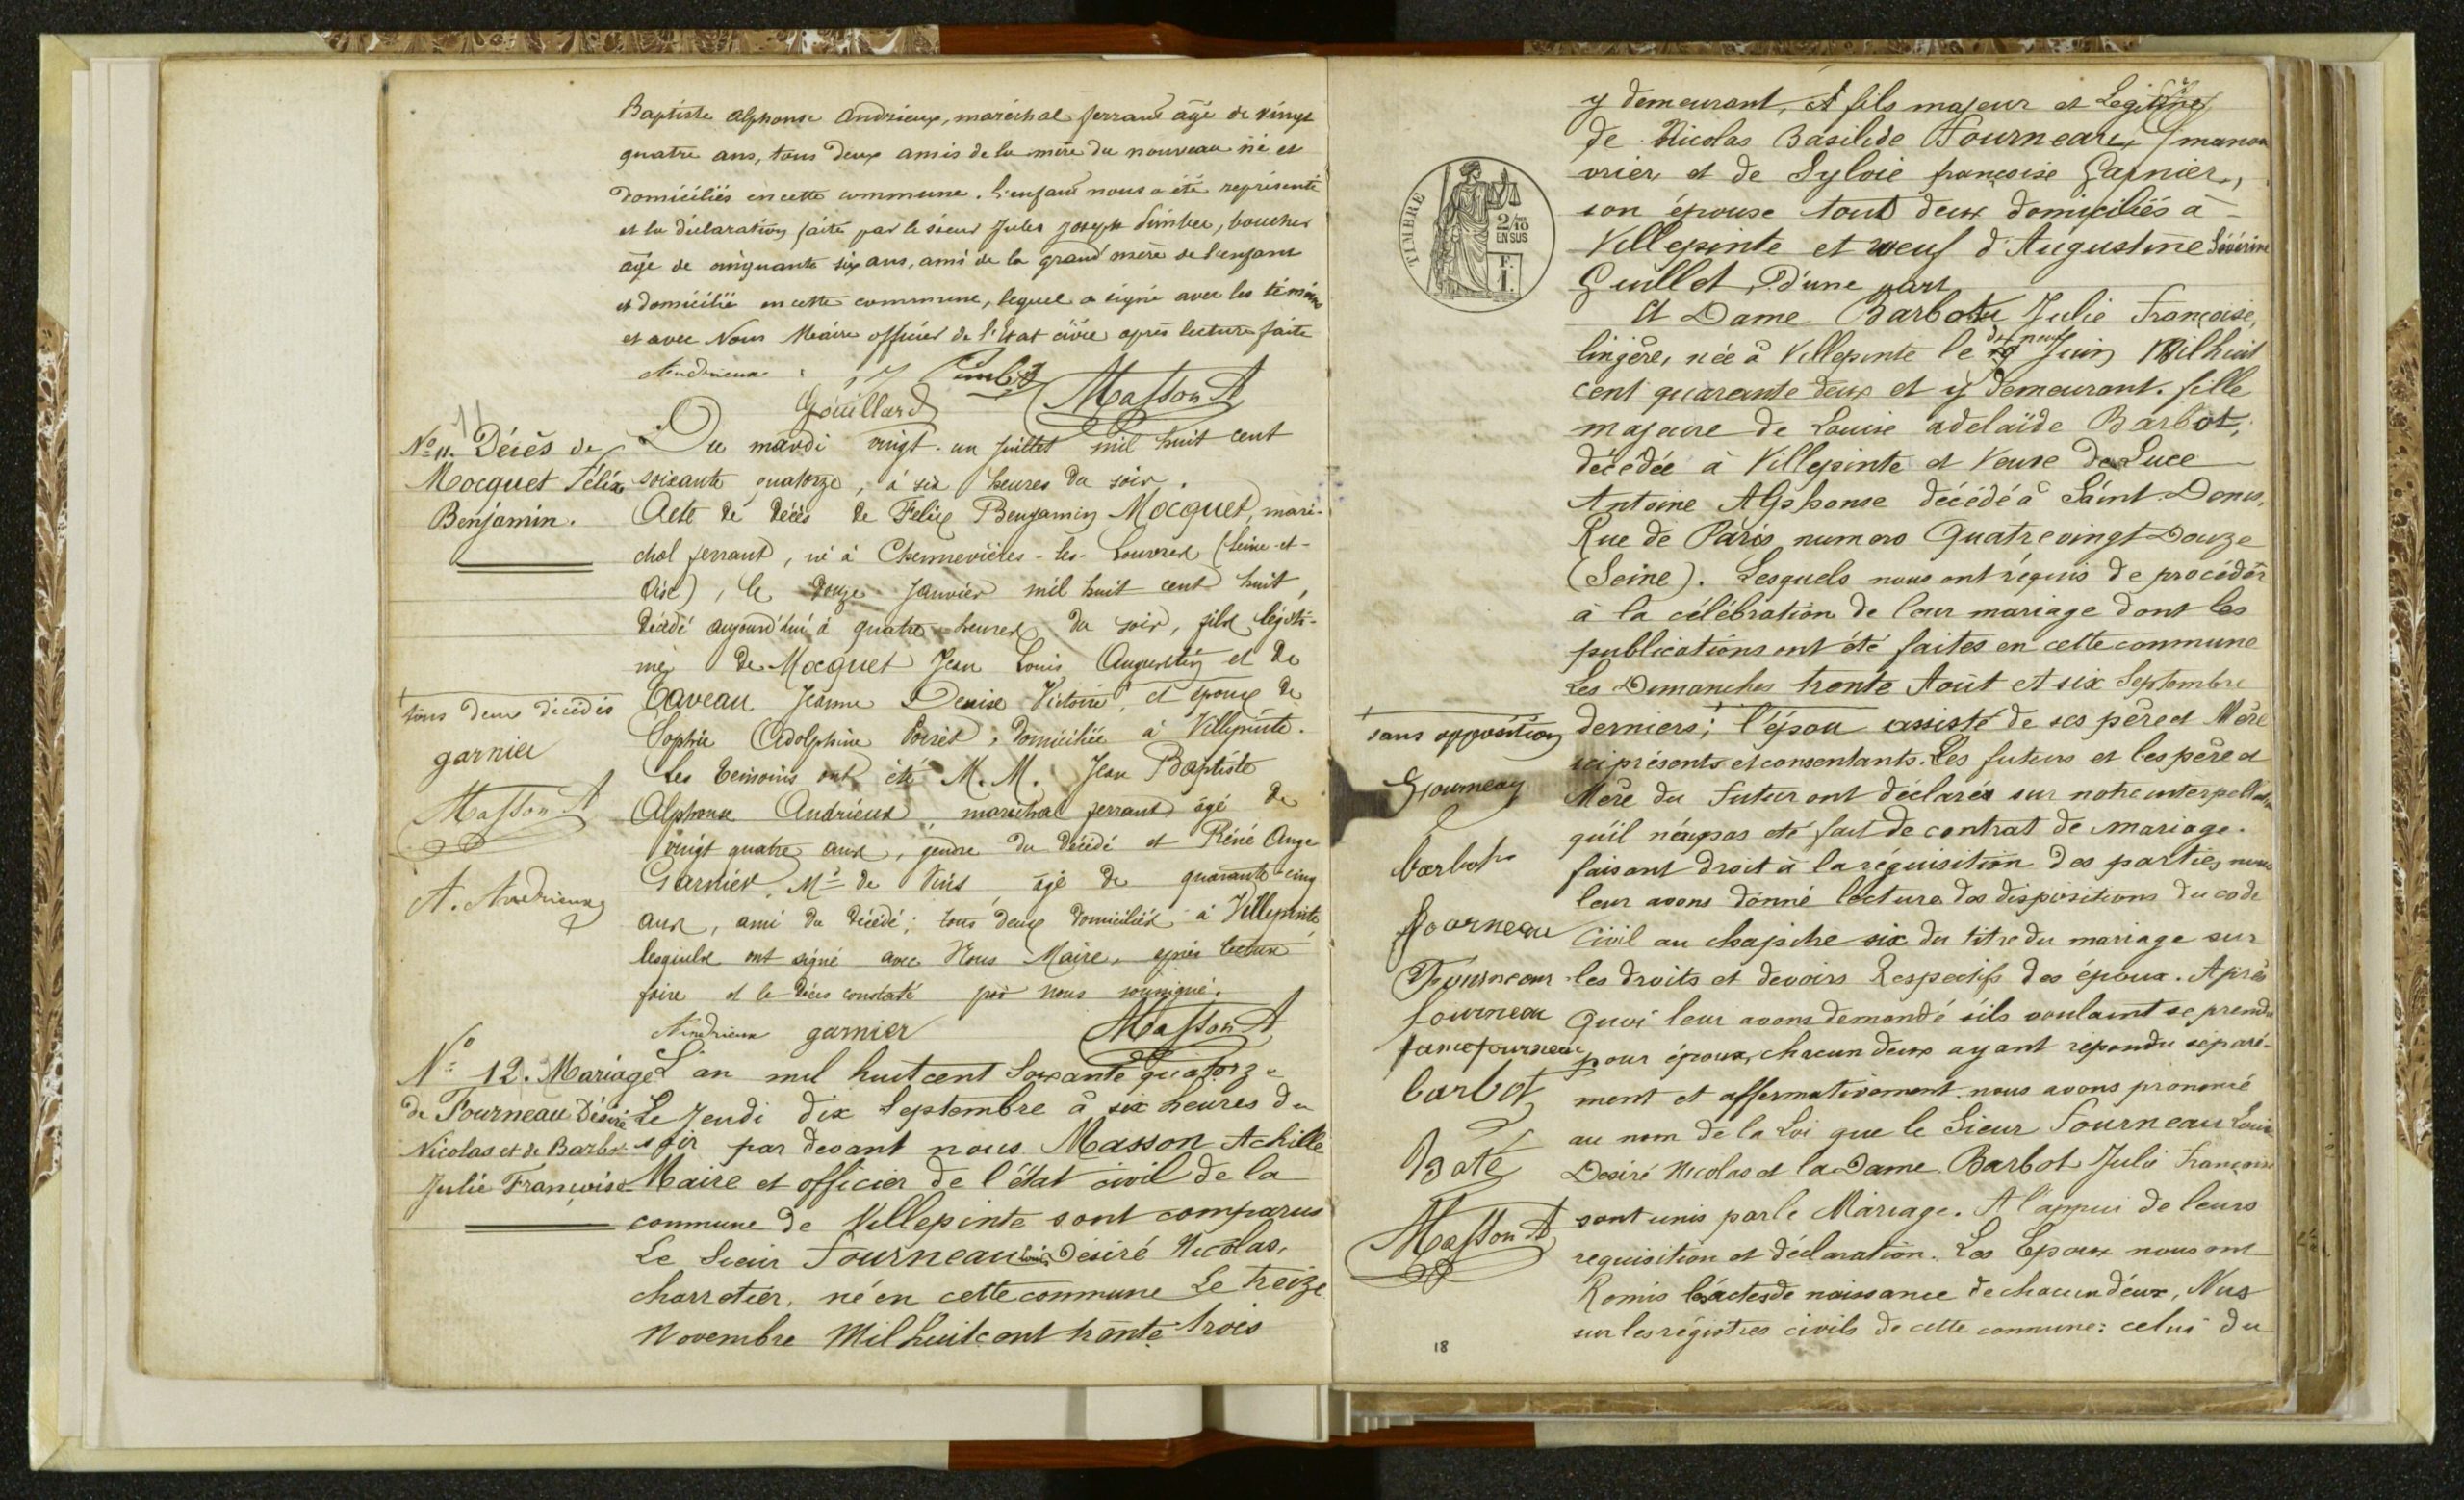 Baptiste Alphonse Andrieux, maréchal ferrant âgé de vingt
quatre ans, tous deux amis de la mère du nouveau né et
domiciliés en cette commune. L'enfant nous a été représenté
et la déclaration faite par le sieur Jules Joseph, boucher
âgé de cinquante six ans, ami de la grand'mère de l'enfant
et domicilié en cette commune, lequel a signé avec les témoins
et avec Nous Maire officier de l'Etat civil après lecture faite
Andrieux
Gouillard Masson A
11
No 11. Décès de
Mocquet Félix
Benjamin.
Du mardi vingt-un juillet mil huit cent
soixante quatorze, à six heures du soir.
Acte de décès de Felix Benjamin Mocquet, maré-
chal ferrant, né à Chennevières-les-Louvres (Seine-et-
Oise), le douze Janvier mil huit cent huit,
décédé aujourd'hui à quatre heures du soir, fils légiti-
me de Mocquet Jean Louis Augustin et de
Taveau Jeanne Denise Victoire, et époux de
Sophie Adolphine Poiret, domiciliée à Villepinte.
Les temoins ont été M.M. Jean Baptiste
Alphonse Andrieux, maréchal ferrant âgé de
vingt quatre ans, gendre du décédé et Réné Ange
Garnier, Md de Vins, âgé de quarante-cinq
ans, ami du décédé; tous deux domiciliés à Villepinte,
lesquels ont signé avec Nous Maire, après lecture
faire et le décès constaté par nous soussigné.
Andrieux garnier Masson A
tous deux décédés
garnier
Masson A
A. Andrieux
No 12. Mariage
de Fourneau Désiré
Nicolas et de Barbot
Julie Françoise
L'an mil huit cent Soixante quatorze
Le Jeudi dix Septembre à six heures du
soir par devant nous Masson Achille
Maire et officier de l'état civil de la
commune de Villepinte sont comparus
Le Sieur Fourneau Louis Désiré Nicolas,
charretier, né en cette commune Le treize
Novembre Mil huit cent trente trois
TIMBRE
2/10
EN SUS
F.
1.
y demeurant, et fils majeur et Légitime
de Nicolas Basilide Fourneau, manou
vrier, et de Sylvie françoise Garnier,
son épouse tout deux domiciliés à
Villepinte et veuf d'Augustine Sévérine
Guillet, D'une part
Et Dame Barbot Julie Françoise,
lingère, née à Villepinte le dix neuf Juin Mil huit
cent quarante deux et y demeurant. fille
majeure de Louise adelaïde Barbot,
décédée à Villepinte et Veuve de Luce
Antoine Alphonse décédé à Saint-Denis,
Rue de Paris numero Quatre vingt Douze
(Seine). Lesquels nous ont réquis de procéder
à la célébration de leur mariage dont les
publications ont été faites en cette commune
Les Dimanches trente Août et six Septembre
derniers; l'épou assisté de ses père et Mère
ici présents et consentants. Les futurs et les père et
Mère du futur ont déclarés sur notre interpellation
qu'il n'a pas été fait de contrat de mariage.
faisant droit à la réquisition des parties, nous
leur avons donné lecture des dispositions du code
Civil au chapitre six du titre du mariage sur
les droits et devoirs Respectifs des époux. Après
Quoi leur avons demandé s'ils voulaient se prendre
pour époux, chacun deux ayant répondu séparé-
ment et affermativement. nous avons prononcé
au nom de la Loi que le Sieur Fourneau Louis
Desiré Nicolas et la Dame Barbot Julie Françoise
sont unis par le Mariage. A l'appui de leurs
requisition et déclaration. Les Epoux nous ont
Remis les actes de naissance de chacun d'eux, Nus
sur les régistres civils de cette commune: celui du
sans opposition
barbot
fourneau
Fourneau
fourneau
barbot
Baté
Masson A
18